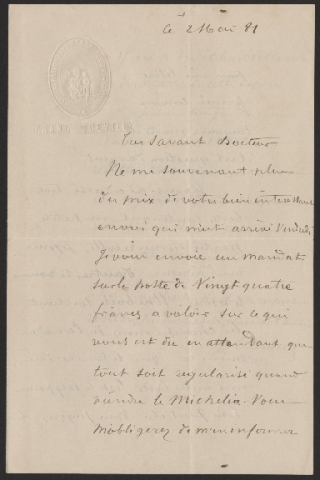 Ce 2 Mai 81
Tres Savant Docteur
Ne me souvenant plus
du prix de votre bien interessant
envoi qui m'est arrivé Vendredi
je vous envoie un mandat
sur la poste de Vingt quatre
francs a valoir sur ce qui
vous est du en attendant que
tout soit regularisé quand
viendra le Michelia. Vous
m'obligerez de m'en informer